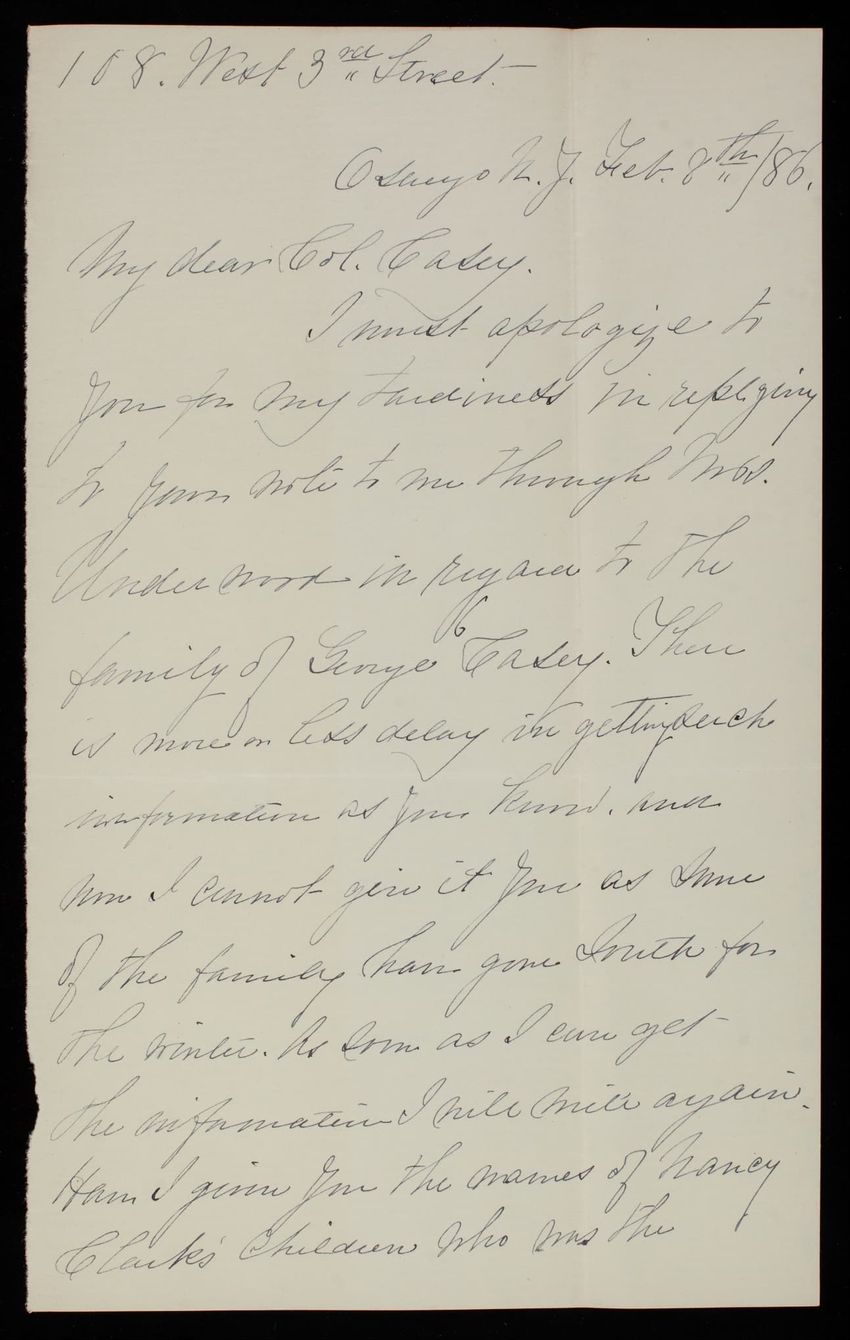 108. West 3rd Street.
Oswego N.Y. Feb. 8th/86.
My dear Col. Casey.
I must apologize to
you for my tardiness in replying
to your note to me through Mrs.
Underwood in regard to the
family of George Casey. There
is more or less delay in getting such
information as you know. and
now I cannot give it you as some
of the family have gone South for
the winter. As soon as I can get
the information I will write again.
Have I given you the names of Nancy
Clark's Children who was the